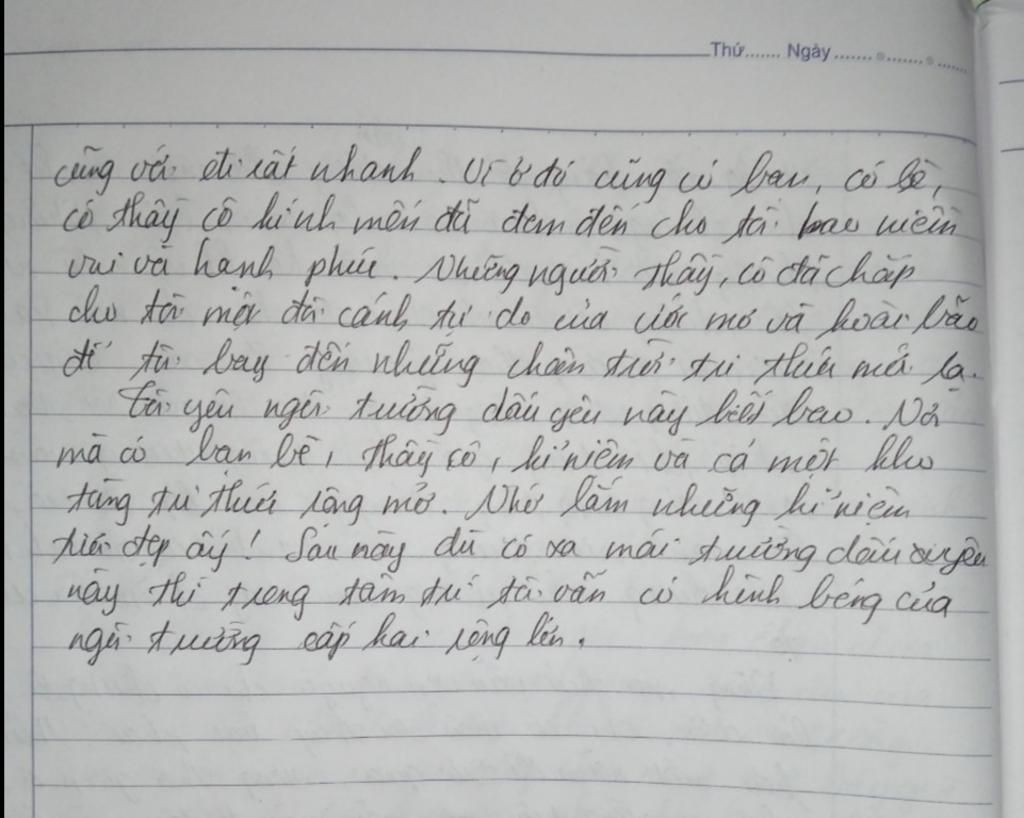 Thứ....... Ngày ....... ....... .......
cũng vơi đi rất nhanh. Vì ở đó cũng có bạn, có bè,
có thầy cô kính mến đã đem đến cho tôi bao niềm
vui và hạnh phúc. Những người thầy, cô đã chắp
cho tôi một đôi cánh tự do của ước mơ và hoài bão
để tôi bay đến những chân trời tri thức mới lạ.
Tôi yêu ngôi trường dấu yêu này biết bao. Nơi
mà có bạn bè, thầy cô, kỉ niệm và cả một kho
tàng tri thức rộng mở. Nhớ lắm những kỉ niệm
tươi đẹp ấy! Sau này dù có xa mái trường dấu yêu
này thì trong tâm trí tôi vẫn có hình bóng của
ngôi trường cấp hai rộng lớn.